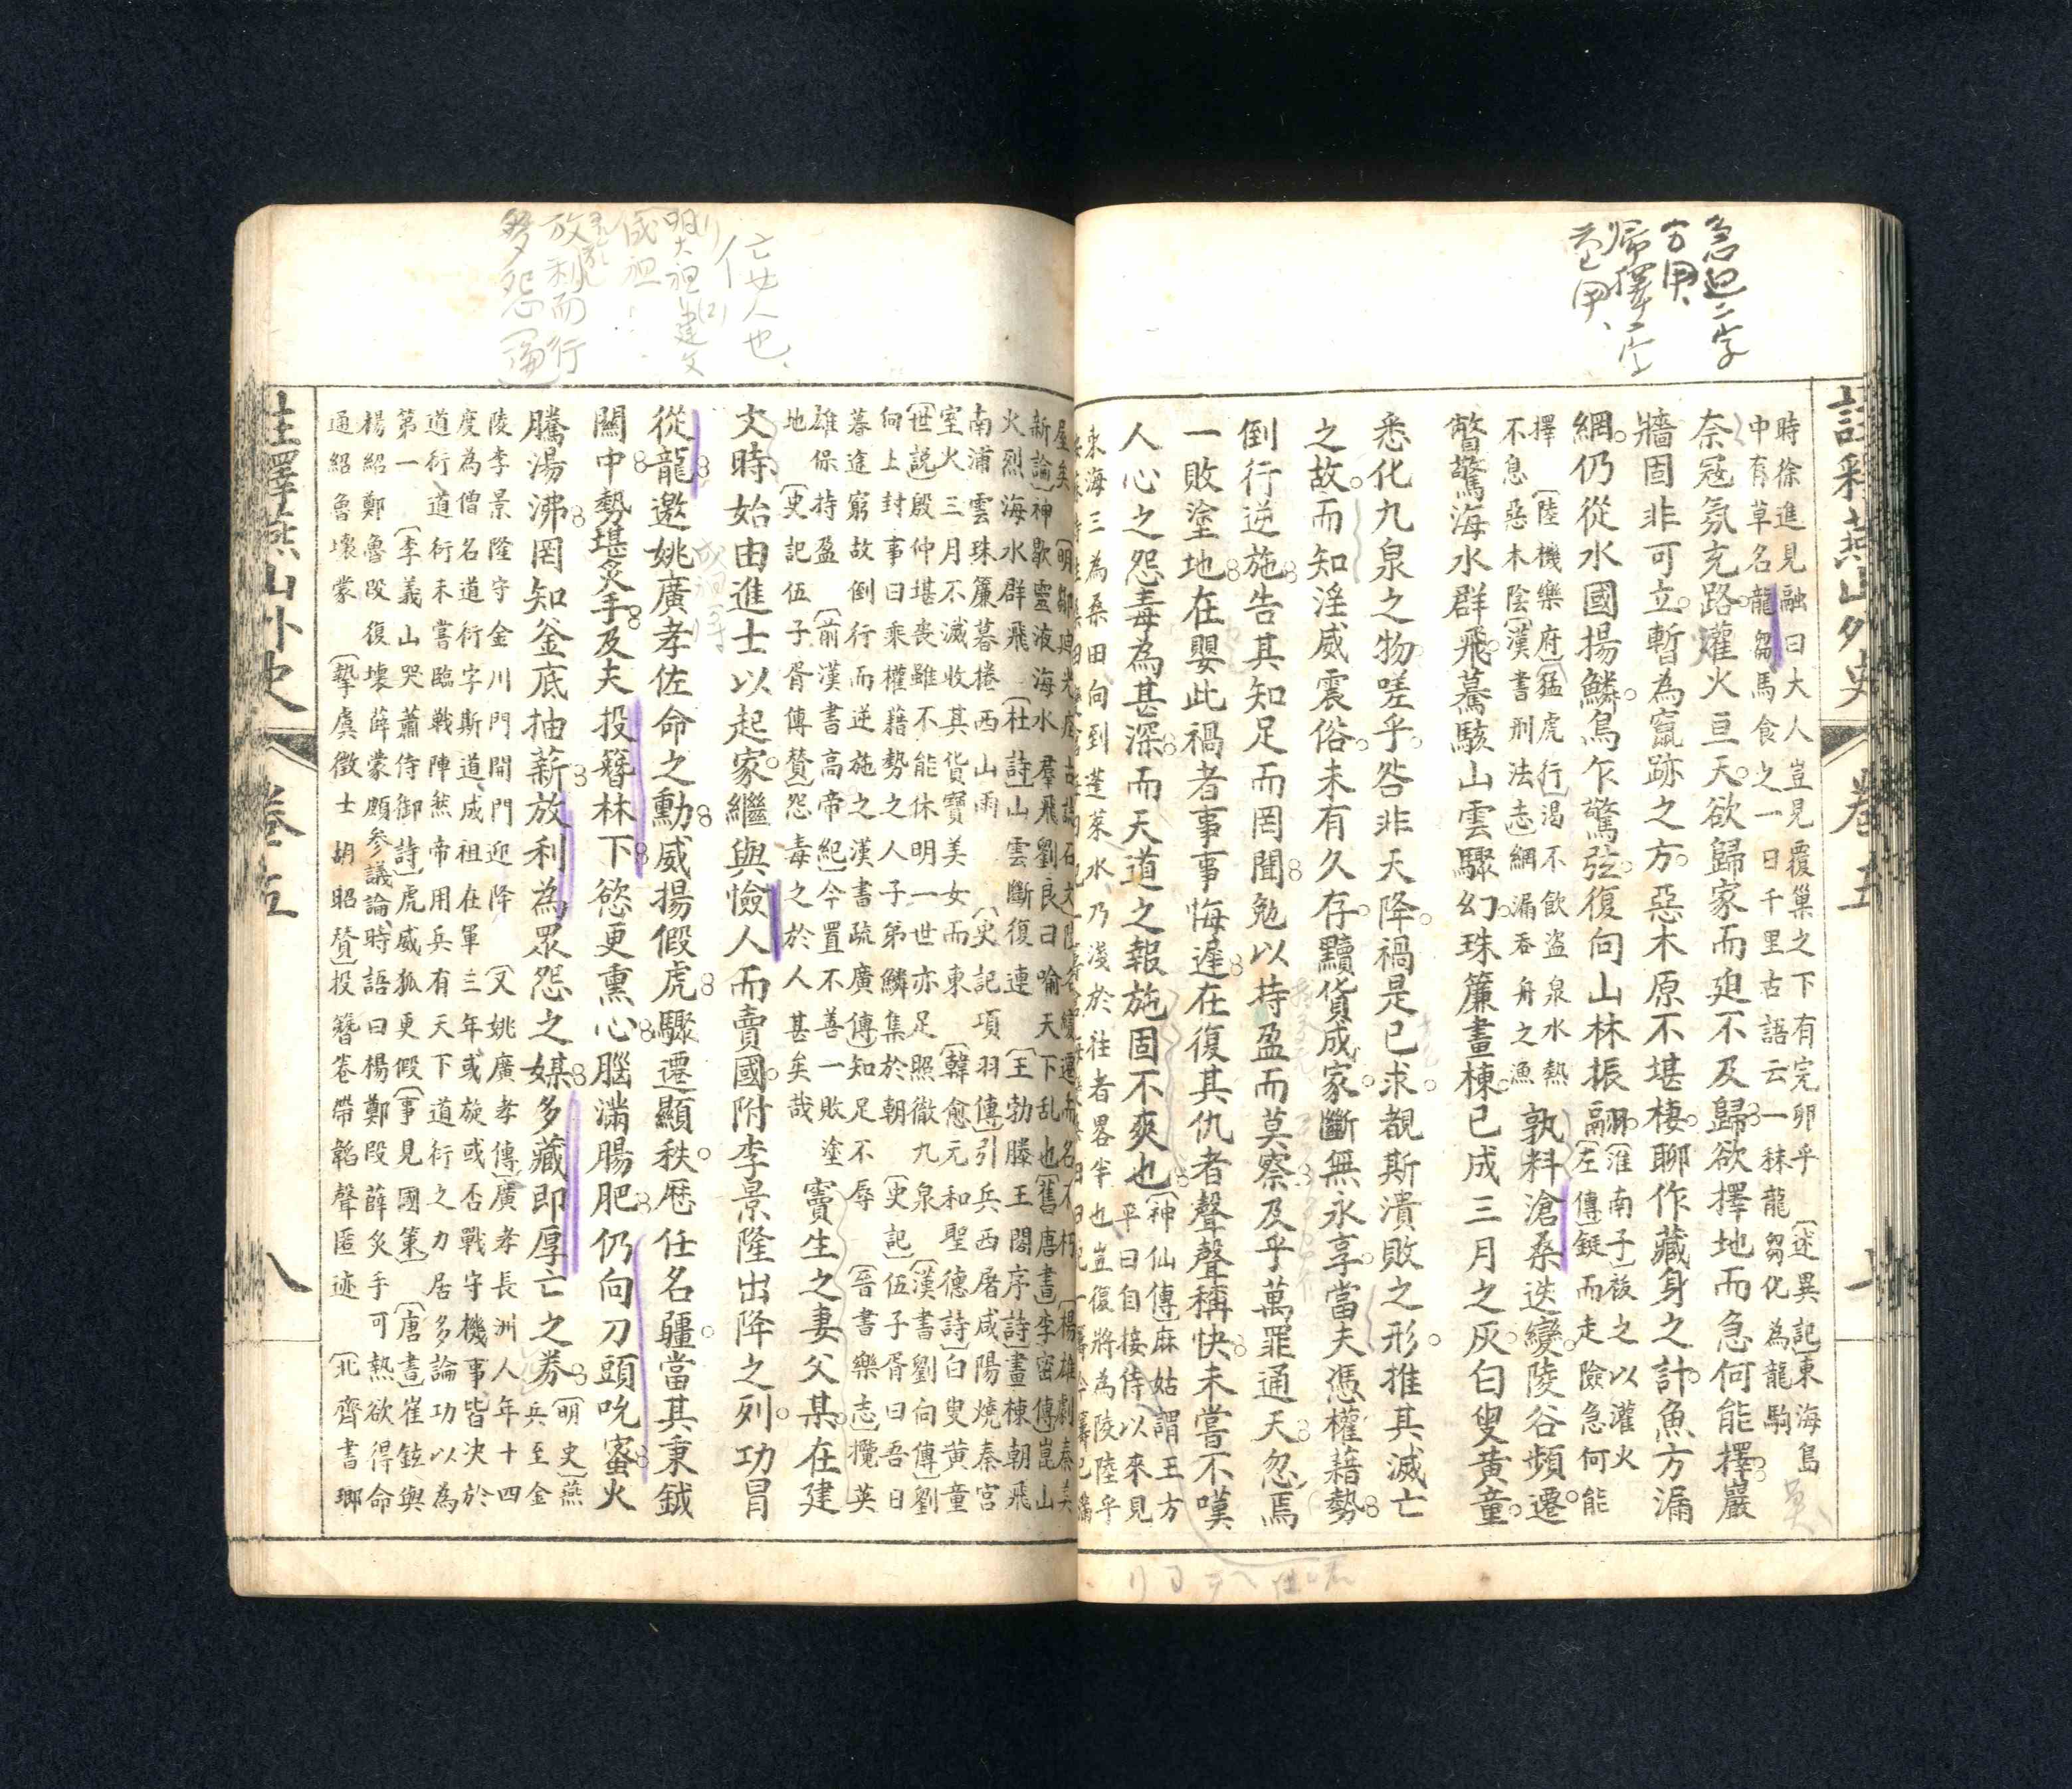 急迫二字
方用
歸擇二字
註釋燕山外史
卷五
時徐進見融曰大人豈見覆巢之下有完卵乎〔述異記〕東海島
中有草名龍芻馬食之一日千里古語云一秣龍芻化為龍駒
奈冠氛充路爟火亘天欲歸家而廹不及歸欲擇地而急何能擇巖
牆固非可立暫為竄跡之方惡木原不堪棲聊作藏身之計魚方漏
網仍從水國揚鱗鳥乍驚弦復向山林振翮
〔淮南子〕被之以爟火
〔左傳〕鋌而走險急何能
擇〔陸機樂府〕〔猛虎行〕渴不飲盜泉水熱
不息惡木陰〔漢書刑法志〕網漏吞舟之漁
孰料滄桑迭變陵谷頻遷
瞥驚海水群飛驀駭山雲驟幻珠簾畫棟已成三月之灰白叟黃童
悉化九泉之物嗟乎咎非天降禍是已求覩斯潰敗之形推其滅亡
之故而知淫威震俗未有久存黷貨成家斷無永享當夫憑權藉勢
倒行逆施告其知足而罔聞勉以持盈而莫察及乎萬罪通天忽焉
一敗塗地在嬰此禍者事事悔遲在復其仇者聲聲稱快未嘗不嘆
人心之怨毒為甚深而天道之報施固不爽也
〔神仙傳〕麻姑謂王方
平曰自接侍以來見
東海三為桑田向到蓬萊水乃淺於往者畧半也豈復將為陵陸乎
火烈海水群飛〔杜詩〕山雲斷復連〔王勃滕王閣序詩〕畫棟朝飛
南浦雲珠簾暮捲西山雨〔史記項羽傳〕引兵西屠咸陽燒秦宮
室火三月不滅收其貨寶美女而東〔韓愈元和聖德詩〕白叟黃童
〔世説〕殷仲堪喪雖不能休明一世亦足照徹九泉〔漢書劉向傳〕劉
向上封事曰乘權藉勢之人子弟鱗集於朝〔史記〕伍子胥曰吾日
暮途窮故倒行而逆施之漢書疏廣傳〕知足不辱〔晉書樂志〕攬英
雄保持盈〔前漢書高帝紀〕今置不善一敗塗
地〔史記伍子胥傳贊〕怨毒之於人甚矣哉
竇生之妻父某在建
文時始由進士以起家繼與憸人而賣國附李景隆出降之列功冒
從龍邀姚廣孝佐命之勳威揚假虎驟遷顯秩歷任名疆當其秉鉞
關中勢堪炙手及夫投簪林下慾更熏心腦滿腸肥仍向刀頭吮蜜火
騰湯沸罔知釜底抽薪放利為眾怨之媒多藏即厚亡之券
〔明史〕燕
兵至金
陵李景隆守金川門開門迎降〔又姚廣孝傳〕廣孝長洲人年十四
度為僧名道衍字斯道成祖在軍三年或旋或否戰守機事皆決於
道衍道衍未嘗臨戰陣然帝用兵有天下道衍之力居多論功以為
第一〔李義山哭蕭侍御詩〕虎威狐更假〔事見國策〕〔唐書〕崔鉉與
楊紹鄭魯段復壞薛蒙頗參議論時語曰楊鄭段薛炙手可熱欲得命
通紹魯壞蒙〔摯虞徵士胡昭贊〕投簪卷帶韜聲匿迹〔北齊書瑯
註釋燕山外史
卷五
八
亡廿人也
明太祖
建文
成祖
放利而行
多怨